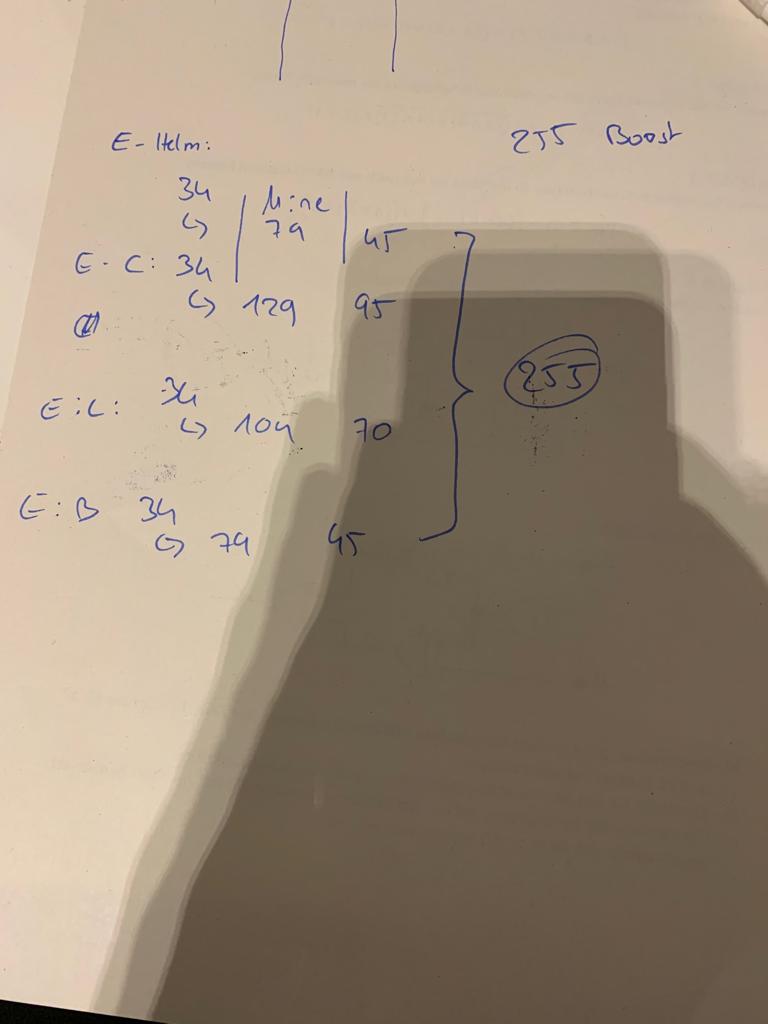 E- Helm: 255 Boost
34 Mine
↳ 79 45
E- C: 34
↳ 129 95
E:L: 34
↳ 104 70
255
E:B 34
↳ 79 45